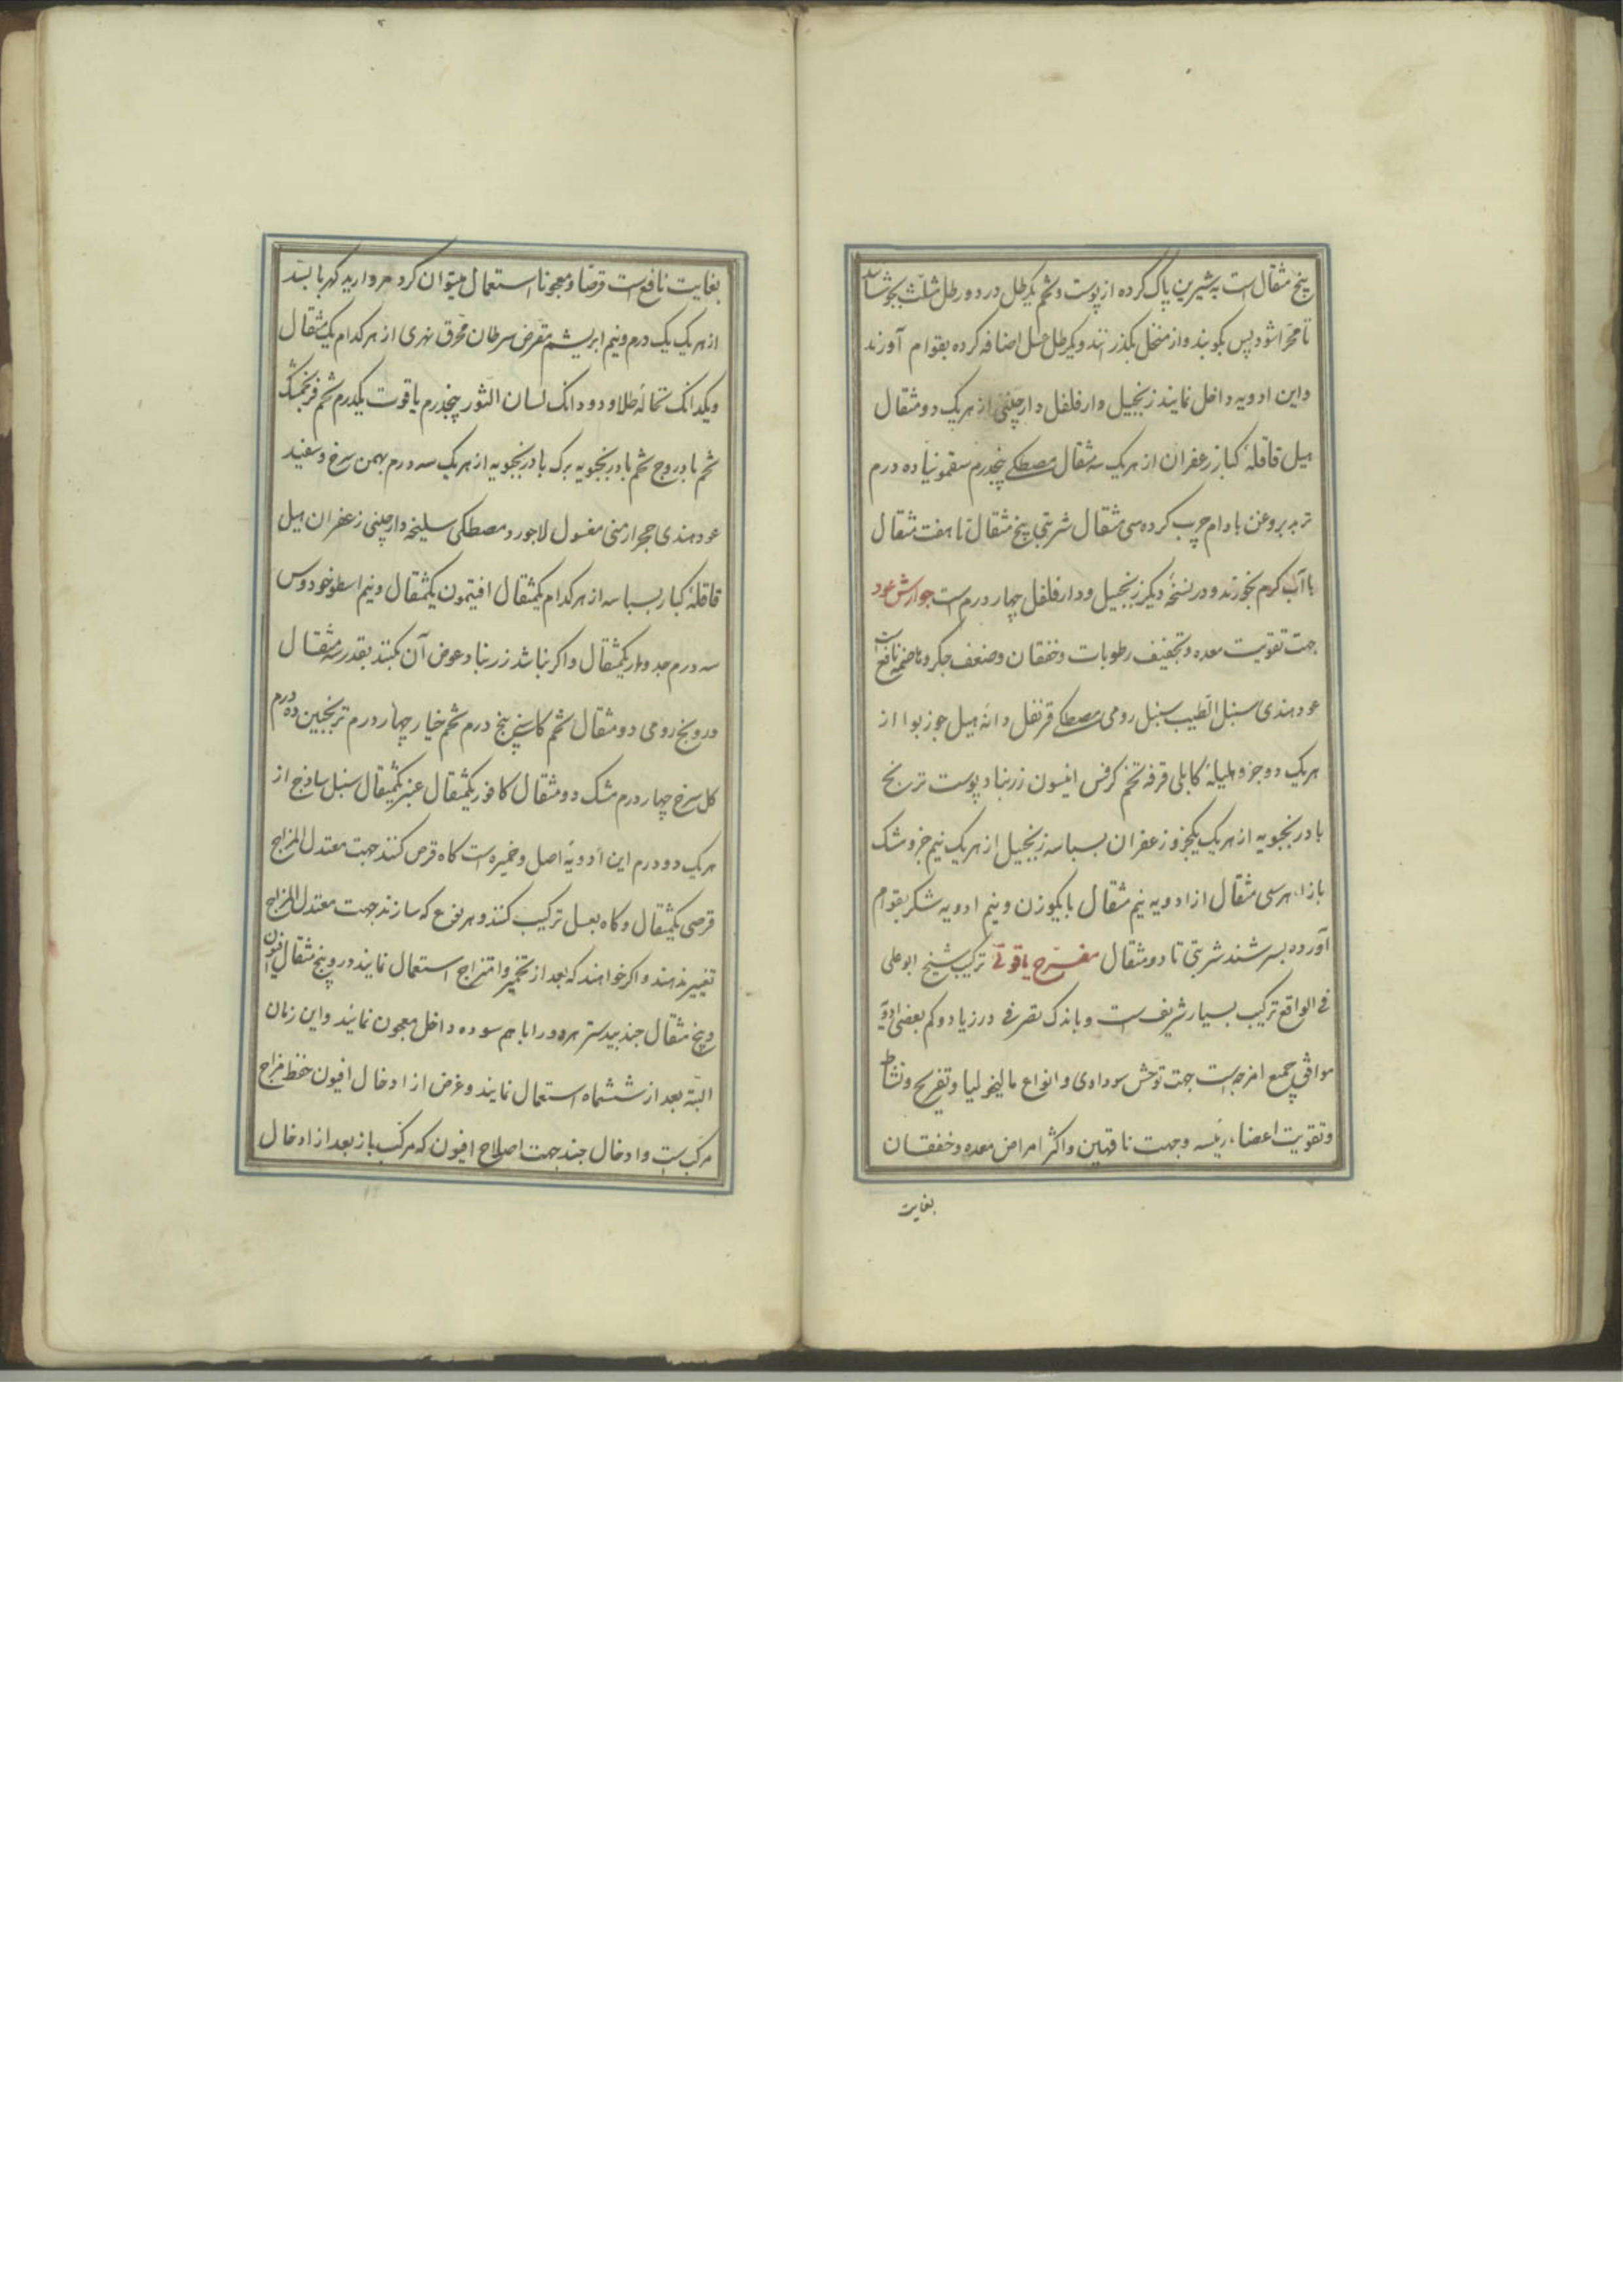 پنج مثقال است به شیرین پاک کرده از پوست و تخم یکرطل در دو رطل مثلث بجوشانند
تا مهرا شود پس بکوبند و از منخل بگذرانند و یکرطل عسل اضافه کرده بقوام آورند
و این ادویه داخل نمایند زنجبیل دارفلفل دارچینی از هریک دو مثقال
هیل قاقلهٔ کبار زعفران از هریک سه مثقال مصطکی پنجدرم سقمونیا ده درم
تربد بروغن بادام چرب کرده سی مثقال شربتی پنج مثقال تا هفت مثقال
با آب گرم بخورند و در نسخهٔ دیگر زنجبیل و دارفلفل چهار درم است جوارش عود
جهت تقویت معده و تجفیف رطوبات و خفقان و ضعف جگر و هاضمه نافع است
عود هندی سنبل الطیب سنبل رومی مصطکی قرنفل دانه هیل جوزبوا از
هریک دو جزو هلیلهٔ کابلی قرفه تخم کرفس انیسون زرنباد پوست ترنج
بادرنجبویه از هریک یکجزو زعفران بسباسه زنجبیل از هریک نیم جزو مشک
بازاء هر سی مثقال از ادویه نیم مثقال با یکوزن و نیم ادویه شکر بقوام
آورده بسرشند شربتی تا دو مثقال مفرح یاقوتی ترکیب شیخ ابوعلی
فی الواقع ترکیب بسیار شریف است و باندک تصرفی در زیاد و کم بعضی ادویه
موافق جمیع امزجه است جهت توحش سوداوی و انواع مالیخولیا و تفریح و نشاط
و تقویت اعضاء رئیسه و جهت ناقهین و اکثر امراض معده و خفقان
بغایت
بغایت نافع است و قرصا و معجونا استعمال میتوان کرد مروارید کهربا بسد
از هریک یک درم و نیم ابریشم مقرض سرطان محرق نهری از هرکدام یکمثقال
و یکدانک سحالهٔ طلا و دو دانک لسان الثور پنجدرم یاقوت یکدرم تخم فرنجمشک
تخم بادروج تخم بادرنجبویه برک بادرنجبویه از هریک سه درم بهمن سرخ و سفید
عود هندی حجر ارمنی مغسول لاجورد مصطکی سلیخه دارچینی زعفران هیل
قاقلهٔ کبار بسباسه از هرکدام یکمثقال افتیمون یکمثقال و نیم اسطوخودوس
سه درم جدوار یکمثقال و اگر نباشد زرنباد عوض آن بکنند بقدر سه مثقال
درونج رومی دو مثقال تخم کاسنی پنج درم تخم خیار چهار درم ترنجبین ده درم
گل سرخ چهار درم مشک دو مثقال کافور یکمثقال عنبر یکمثقال سنبل ساذج از
هریک دو درم این ادویه اصل و خمیره است گاه قرص کنند جهت معتدل المزاج
قرصی یکمثقال و گاه بعسل ترکیب کنند و هر نوع که سازند جهت معتدل المزاج
تغییر ندهند و اگر خواهند که بعد از تخمیر و امتزاج استعمال نمایند در و پنج مثقال افیون
و پنج مثقال جندبیدستر هر دو را با هم سوده داخل معجون نمایند و این زمان
البته بعد از ششماه استعمال نمایند و غرض از ادخال افیون حفظ مزاج
مرکب است و ادخال جند جهت اصلاح افیون که مرکب باز بعد از ادخال